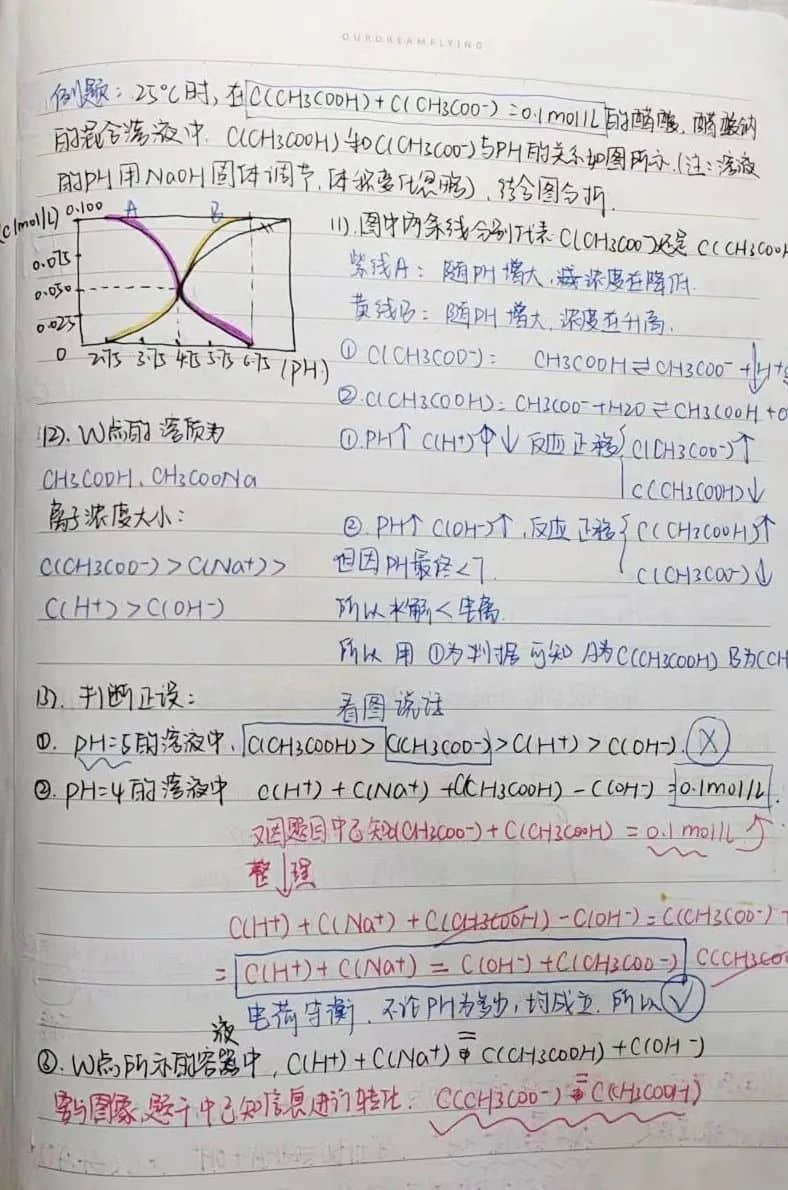 OURDREAMFLYING
例题：25℃时，在C(CH3COOH)+C(CH3COO-)=0.1mol/L的醋酸、醋酸钠
的混合溶液中，C(CH3COOH)和C(CH3COO-)与PH的关系如图所示.(注：溶液
的PH用NaOH固体调节，体积变化忽略)，结合图分析.
C(mol/L) 0.100 A B
0.075
0.050
0.025
0 2.75 3.75 4.75 5.75 6.75 (PH)
(1).图中两条线分别代表C(CH3COO-)还是C(CH3COOH
紫线A：随PH增大，浓度在降低.
黄线B：随PH增大，浓度在升高.
① C(CH3COO-)： CH3COOH⇌CH3COO-+H+
②.C(CH3COOH)：CH3COO-+H2O⇌CH3COOH+O
①.PH↑ C(H+)↓ 反应正移{C(CH3COO-)↑
C(CH3COOH)↓
②.PH↑ C(OH-)↑,反应正移{C(CH3COOH)↑
C(CH3COO-)↓
但因PH最终<7.
所以水解<电离.
所以用①为判据可知A为C(CH3COOH) B为C(CH
(2).W点的溶质为
CH3COOH、CH3COONa
离子浓度大小：
C(CH3COO-)>C(Na+)>
C(H+)>C(OH-)
(3).判断正误： 看图说话
①.PH=5的溶液中，C(CH3COOH)>C(CH3COO-)>C(H+)>C(OH-).X
②.PH=4的溶液中 C(H+)+C(Na+)+C(CH3COOH)-C(OH-)=0.1mol/L.
又因题目中已知C(CH3COO-)+C(CH3COOH)=0.1mol/L
整↓理
C(H+)+C(Na+)+C(CH3COOH)-C(OH-)=C(CH3COO-)+
=C(H+)+C(Na+)=C(OH-)+C(CH3COO-) C(CH3COO
电荷守衡，不论PH为多少，均成立.所以√
③.W点所示的溶液中，C(H+)+C(Na+)=C(CH3COOH)+C(OH-)
要与图象、题干中已知信息进行转化. C(CH3COO-)=C(CH3COOH)